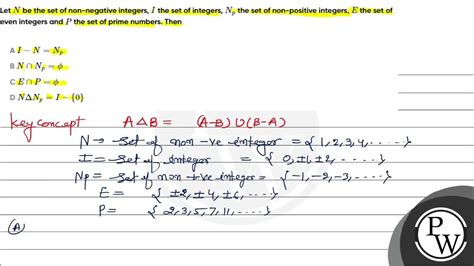 Let N be the set of non-negative integers, I the set of integers, Np the set of non-positive integers, E the set of
even integers and P the set of prime numbers. Then
A I − N = Np
B N ∩ Np = ϕ
C E ∩ P = ϕ
D NΔNp = I − {0}
Key concept A Δ B = (A-B) U (B-A)
N → Set of non -ve integer = { 1, 2, 3, 4, ..... }
I = Set of integer = { 0, ±1, ±2, ..... }
Np = Set of non +ve integer = { -1, -2, -3, ..... }
E = { ±2, ±4, ±6, .... }
P = { 2, 3, 5, 7, 11, .... }
(A)
PW